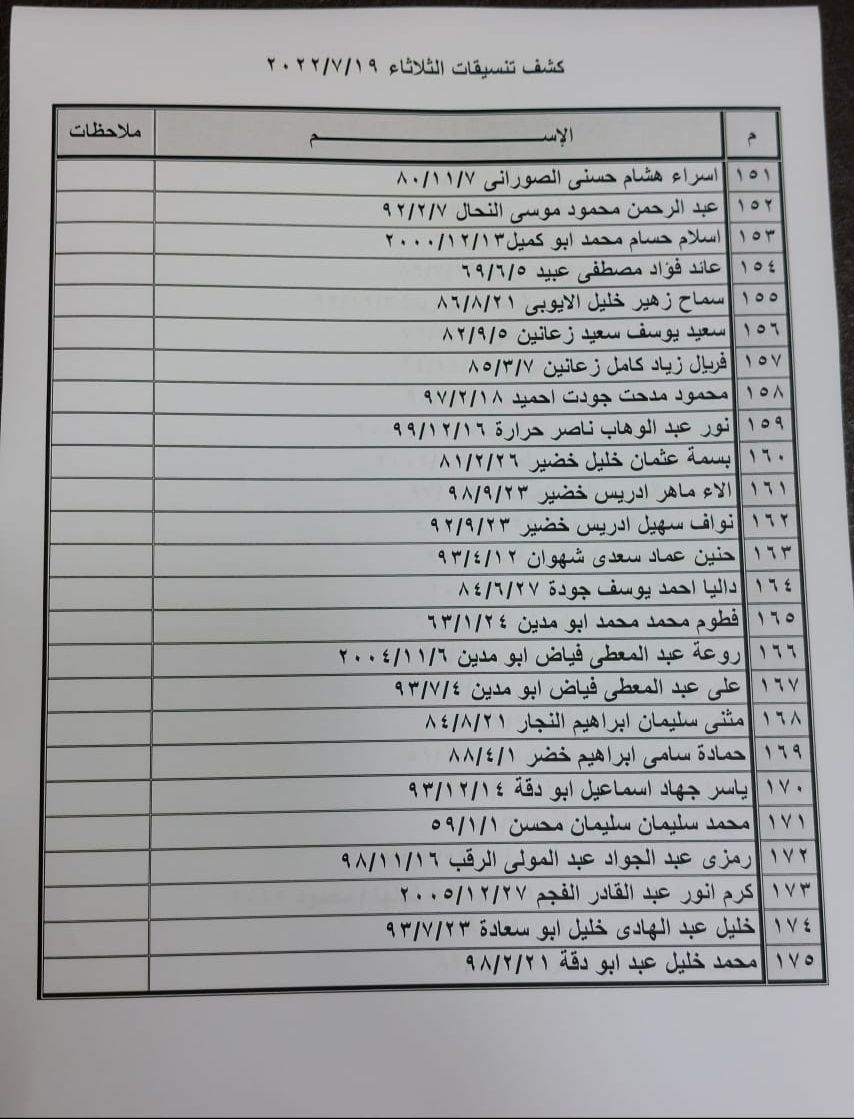 كشف تنسيقات الثلاثاء ٢٠٢٢/٧/١٩
م الإســـــــــــم ملاحظات
١٥١ اسراء هشام حسنى الصورانى ٨٠/١١/٧
١٥٢ عبد الرحمن محمود موسى النحال ٩٢/٢/٧
١٥٣ اسلام حسام محمد ابو كميل ٢٠٠٠/١٢/١٣
١٥٤ عائد فؤاد مصطفى عبيد ٦٩/٦/٥
١٥٥ سماح زهير خليل الايوبى ٨٦/٨/٢١
١٥٦ سعيد يوسف سعيد زعانين ٨٢/٩/٥
١٥٧ فريال زياد كامل زعانين ٨٥/٣/٧
١٥٨ محمود مدحت جودت احميد ٩٧/٢/١٨
١٥٩ نور عبد الوهاب ناصر حرارة ٩٩/١٢/١٦
١٦٠ بسمة عثمان خليل خضير ٨١/٢/٢٦
١٦١ الاء ماهر ادريس خضير ٩٨/٩/٢٣
١٦٢ نواف سهيل ادريس خضير ٩٢/٩/٢٣
١٦٣ حنين عماد سعدى شهوان ٩٣/٤/١٢
١٦٤ داليا احمد يوسف جودة ٨٤/٦/٢٧
١٦٥ فطوم محمد محمد ابو مدين ٦٣/١/٢٤
١٦٦ روعة عبد المعطى فياض ابو مدين ٢٠٠٤/١١/٦
١٦٧ على عبد المعطى فياض ابو مدين ٩٣/٧/٤
١٦٨ مثنى سليمان ابراهيم النجار ٨٤/٨/٢١
١٦٩ حمادة سامى ابراهيم خضر ٨٨/٤/١
١٧٠ ياسر جهاد اسماعيل ابو دقة ٩٣/١٢/١٤
١٧١ محمد سليمان سليمان محسن ٥٩/١/١
١٧٢ رمزى عبد الجواد عبد المولى الرقب ٩٨/١١/١٦
١٧٣ كرم انور عبد القادر الفجم ٢٠٠٥/١٢/٢٧
١٧٤ خليل عبد الهادى خليل ابو سعادة ٩٣/٧/٢٣
١٧٥ محمد خليل عبد ابو دقة ٩٨/٢/٢١